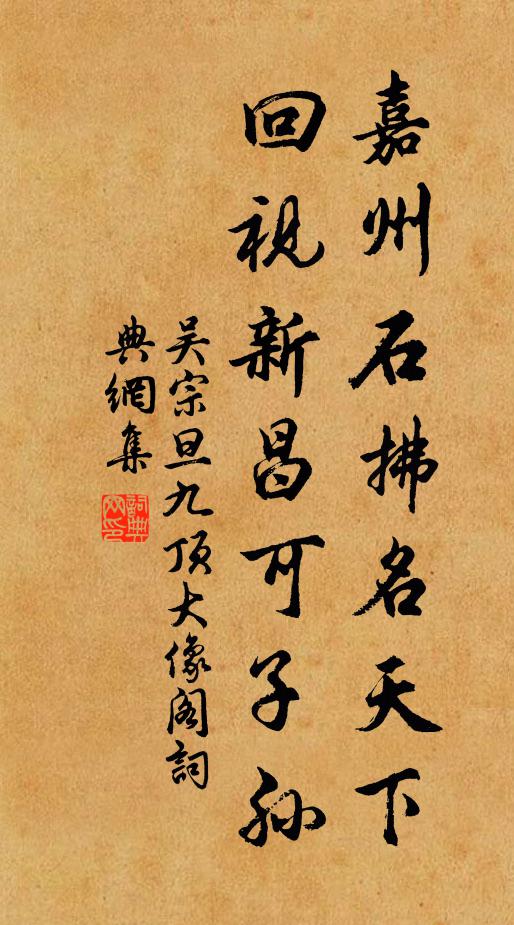 嘉州石拂名天下
回視新昌可子孫
吳宗旦九頂大像閣詞
典網集
詞典網印